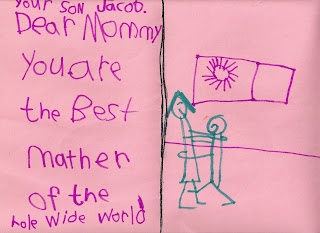 your son Jacob.
Dear Mommy
You are
the Best
mather
of the
hole wide world!